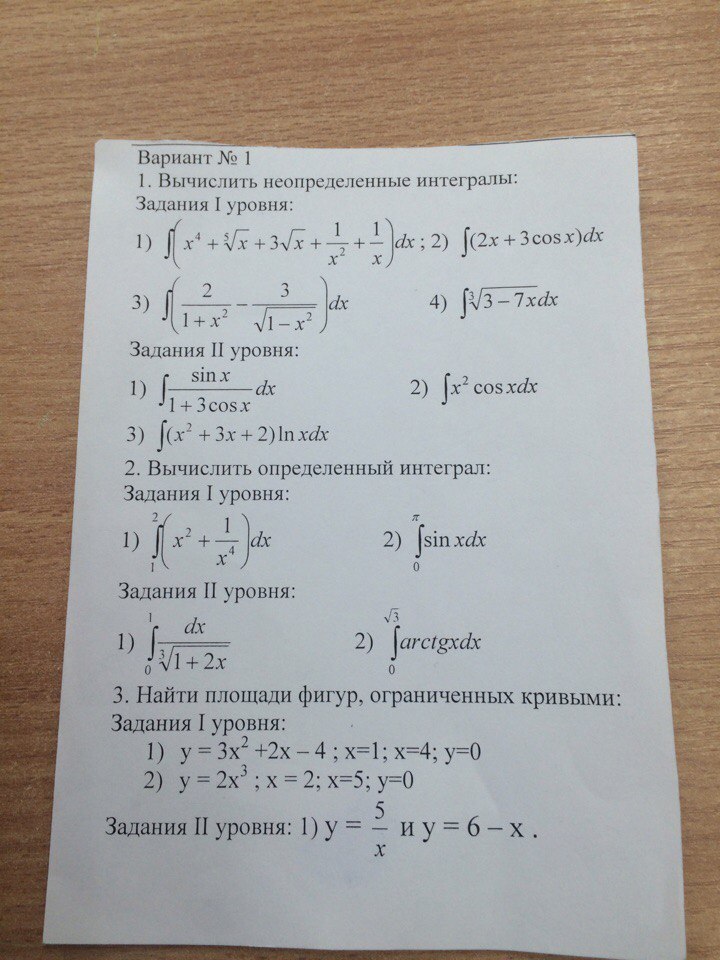 Вариант № 1
1. Вычислить неопределенные интегралы:
Задания I уровня:
1) ∫(x⁴ + ⁵√x + 3√x + 1/x² + 1/x)dx ; 2) ∫(2x + 3cos x)dx
3) ∫(2/(1+x²) − 3/√(1−x²))dx 4) ∫³√(3−7x)dx
Задания II уровня:
1) ∫ sin x/(1+3cos x) dx 2) ∫x² cos xdx
3) ∫(x² + 3x + 2)ln xdx
2. Вычислить определенный интеграл:
Задания I уровня:
1) ∫₁²(x² + 1/x⁴)dx 2) ∫₀^π sin xdx
Задания II уровня:
1) ∫₀¹ dx/³√(1+2x) 2) ∫₀^√3 arctgxdx
3. Найти площади фигур, ограниченных кривыми:
Задания I уровня:
1) y = 3x² +2x – 4 ; x=1; x=4; y=0
2) y = 2x³ ; x = 2; x=5; y=0
Задания II уровня: 1) y = 5/x и y = 6 – x .